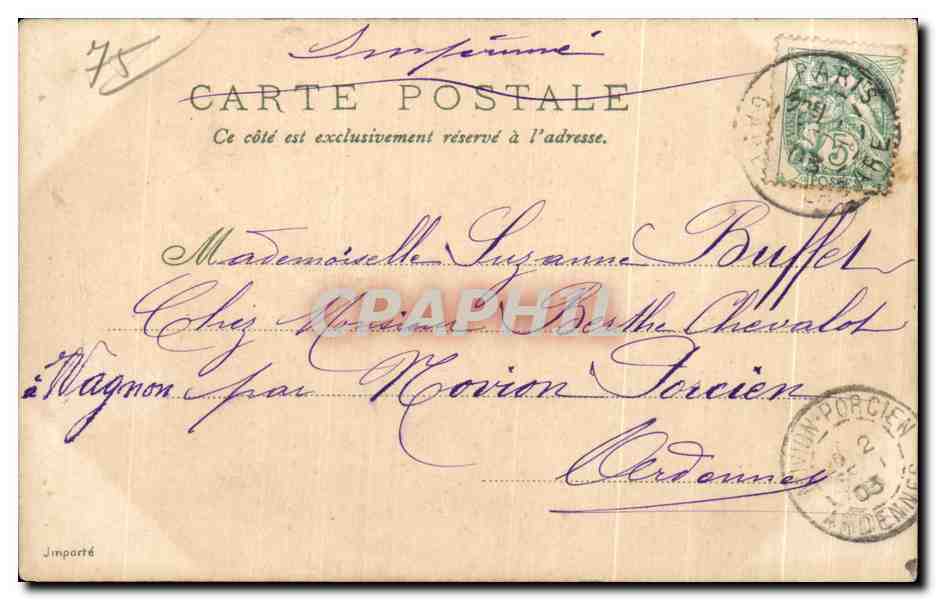 75
Imprimé
CARTE POSTALE
Ce côté est exclusivement réservé à l'adresse.
PARIS
5
03
Mademoiselle Suzanne Buffet
Chez Monsieur Berthe Chevalot
à Wagnon par Novion Porcien
Ardennes
NOVION-PORCIEN
2
03
ARDENNES
Importé
CPAPHIL